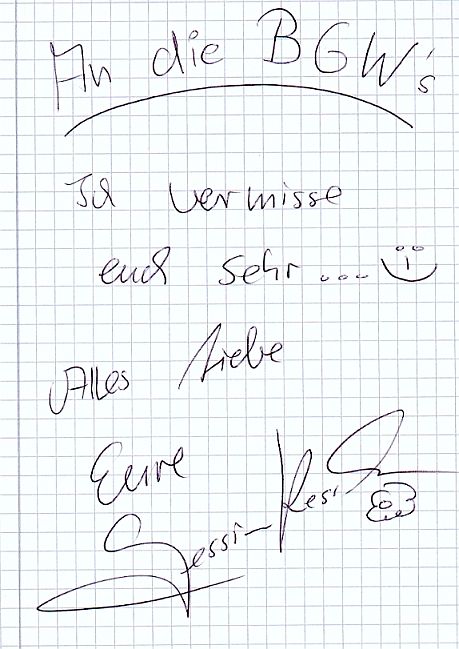 An die BGW's
Ich vermisse
euch sehr ...
Alles Liebe
Eure